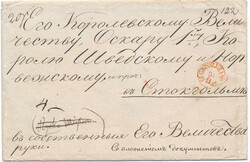 207 122
Его Королевскому Вели-
честву, Оскару I му Ко-
ролю Шведскому и Нор-
вежскому
въ Стокгольмъ
4
въ собственныя Его Величества
руки.
Съ вложеніемъ документовъ.